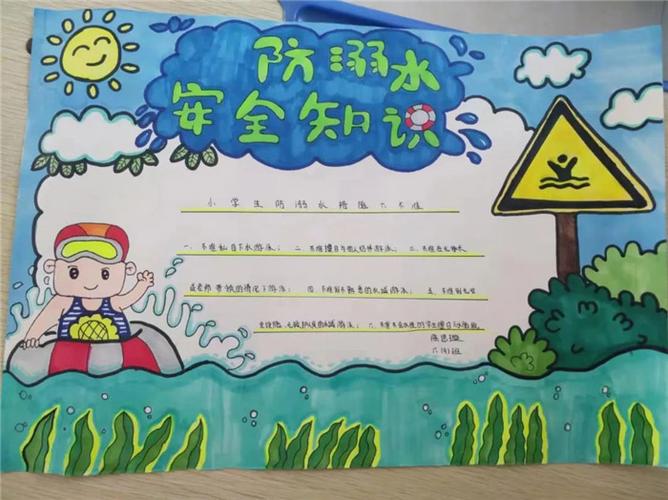 防溺水
安全知识
小学生防溺水措施六不准
一、不准私自下水游泳；二、不准擅自与他人结伴游泳；三、不准在无家长
或老师带领的情况下游泳；四、不准到不熟悉的水域游泳；五、不准到无安
全设施、无救护人员的水域游泳；六、不准不会水性的学生擅自下水施救
六